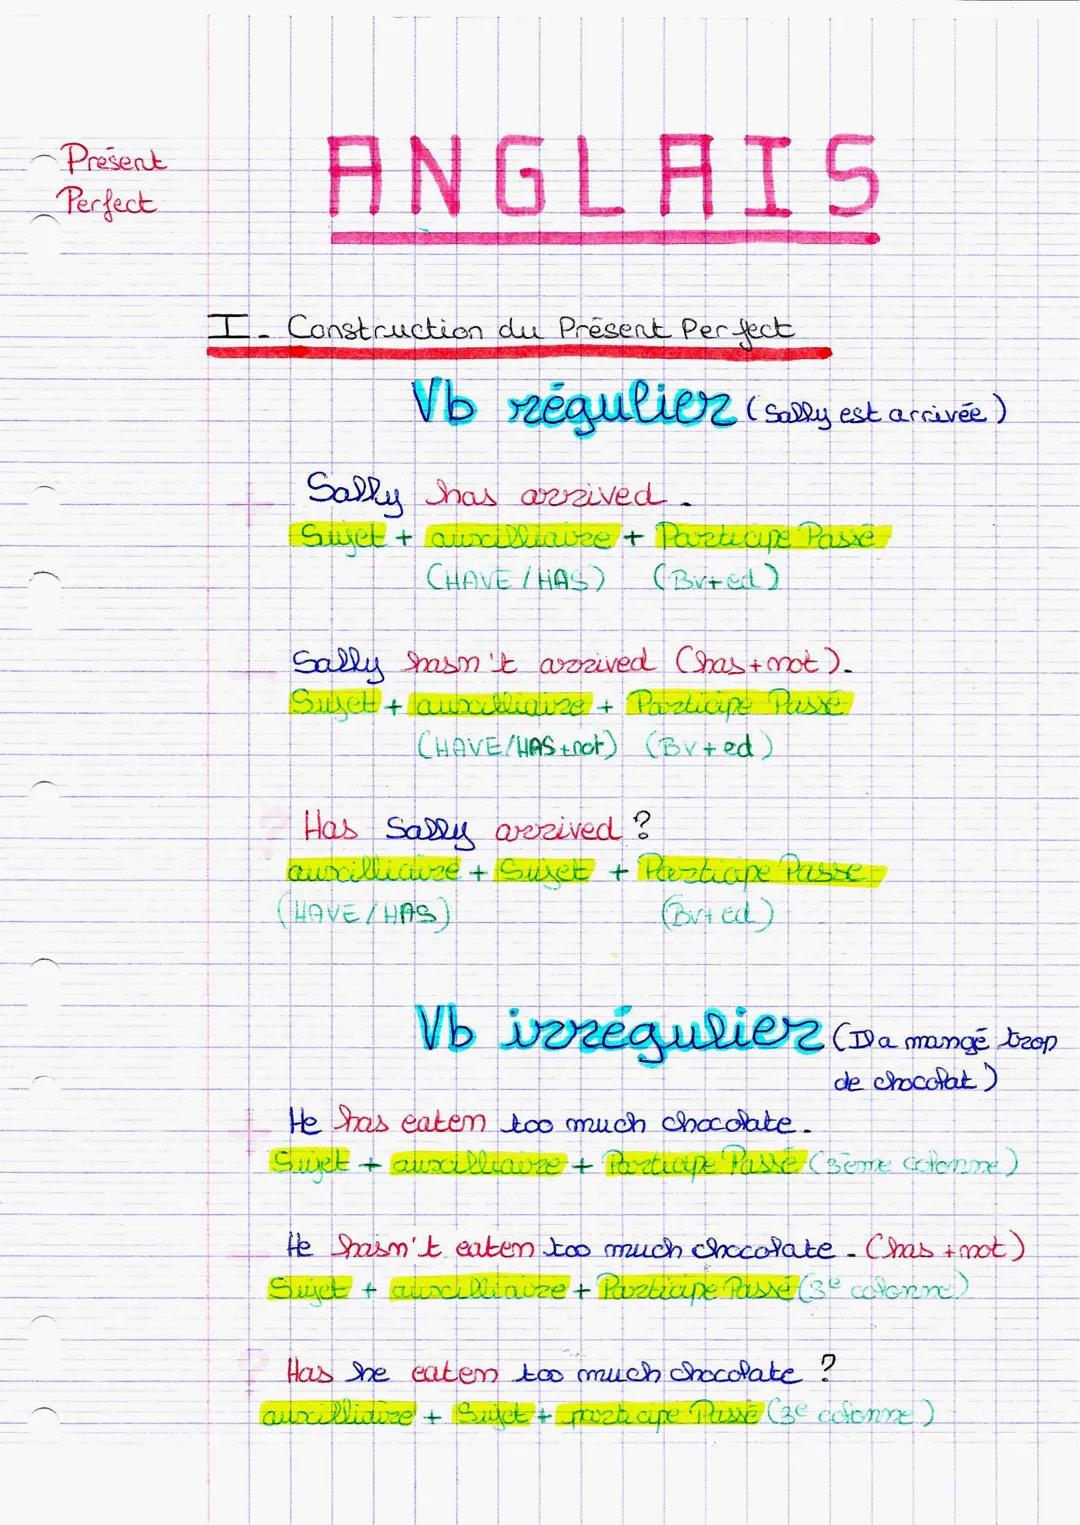 Présent
Perfect
ANGLAIS
I - Construction du Présent Perfect
Vb régulier (Sally est arrivée)
+ Sally has arrived.
Sujet + auxilliaire + Participe Passé
(HAVE / HAS) (Bv+ed)
- Sally hasn't arrived (has+not).
Sujet + auxilliaire + Participe Passé
(HAVE/HAS+not) (Bv+ed)
? Has Sally arrived ?
auxilliaire + Sujet + Participe Passé
(HAVE / HAS) (Bv+ed)
Vb irrégulier (Il a mangé trop
de chocolat)
+ He has eaten too much chocolate.
Sujet + auxilliaire + Participe Passé (3ème colonne)
- He hasn't eaten too much chocolate. (has+not)
Sujet + auxilliaire + Participe Passé (3e colonne)
? Has he eaten too much chocolate ?
auxilliaire + Sujet + participe Passé (3e colonne)